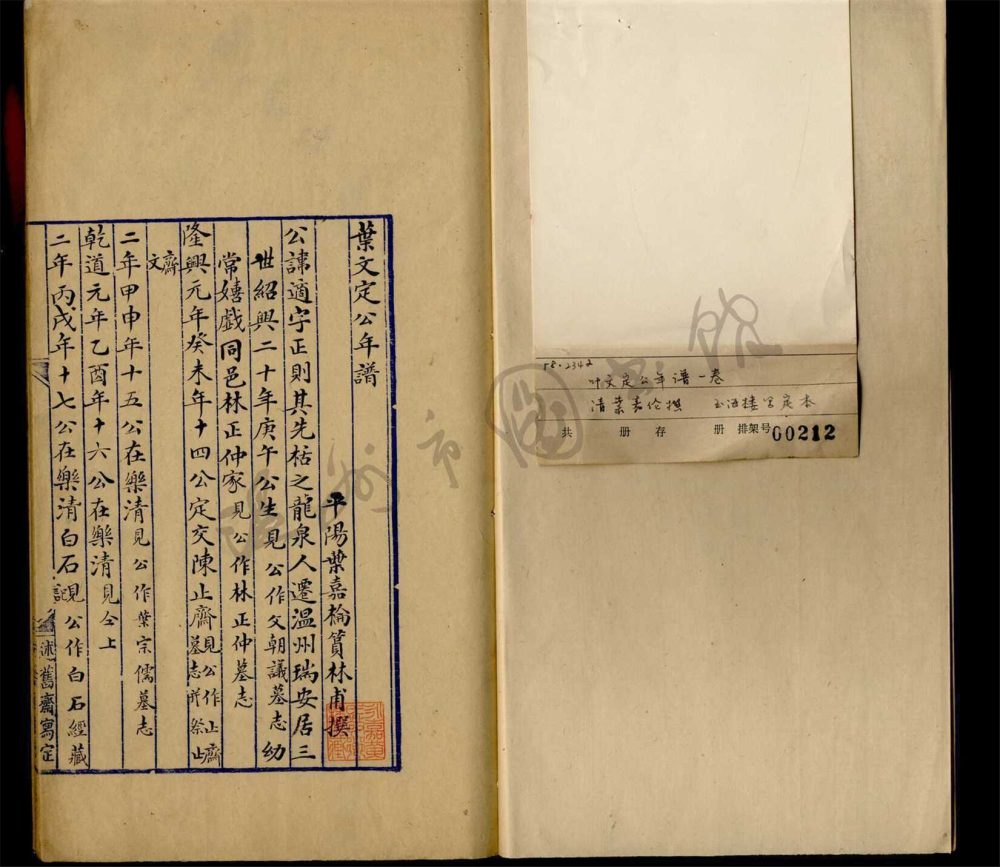 葉文定公年譜
平陽葉嘉棆篔林甫撰
公諱適字正則其先栝之龍泉人遷溫州瑞安居三
世紹興二十年庚午公生見公作父朝議墓志幼
常嬉戲同邑林正仲家見公作林正仲墓志
隆興元年癸未年十四公定交陳止齋見公作止齋墓志并祭止
齋文
二年甲申年十五公在樂清見公作葉宗儒墓志
乾道元年乙酉年十六公在樂清見仝上
二年丙戌年十七公在樂清白石見公作白石經藏記
述舊齋寫定
58.2342
叶文定公年谱一卷
清葉嘉伦撰
共 册 存 册 排架号 00212
温州市图书馆